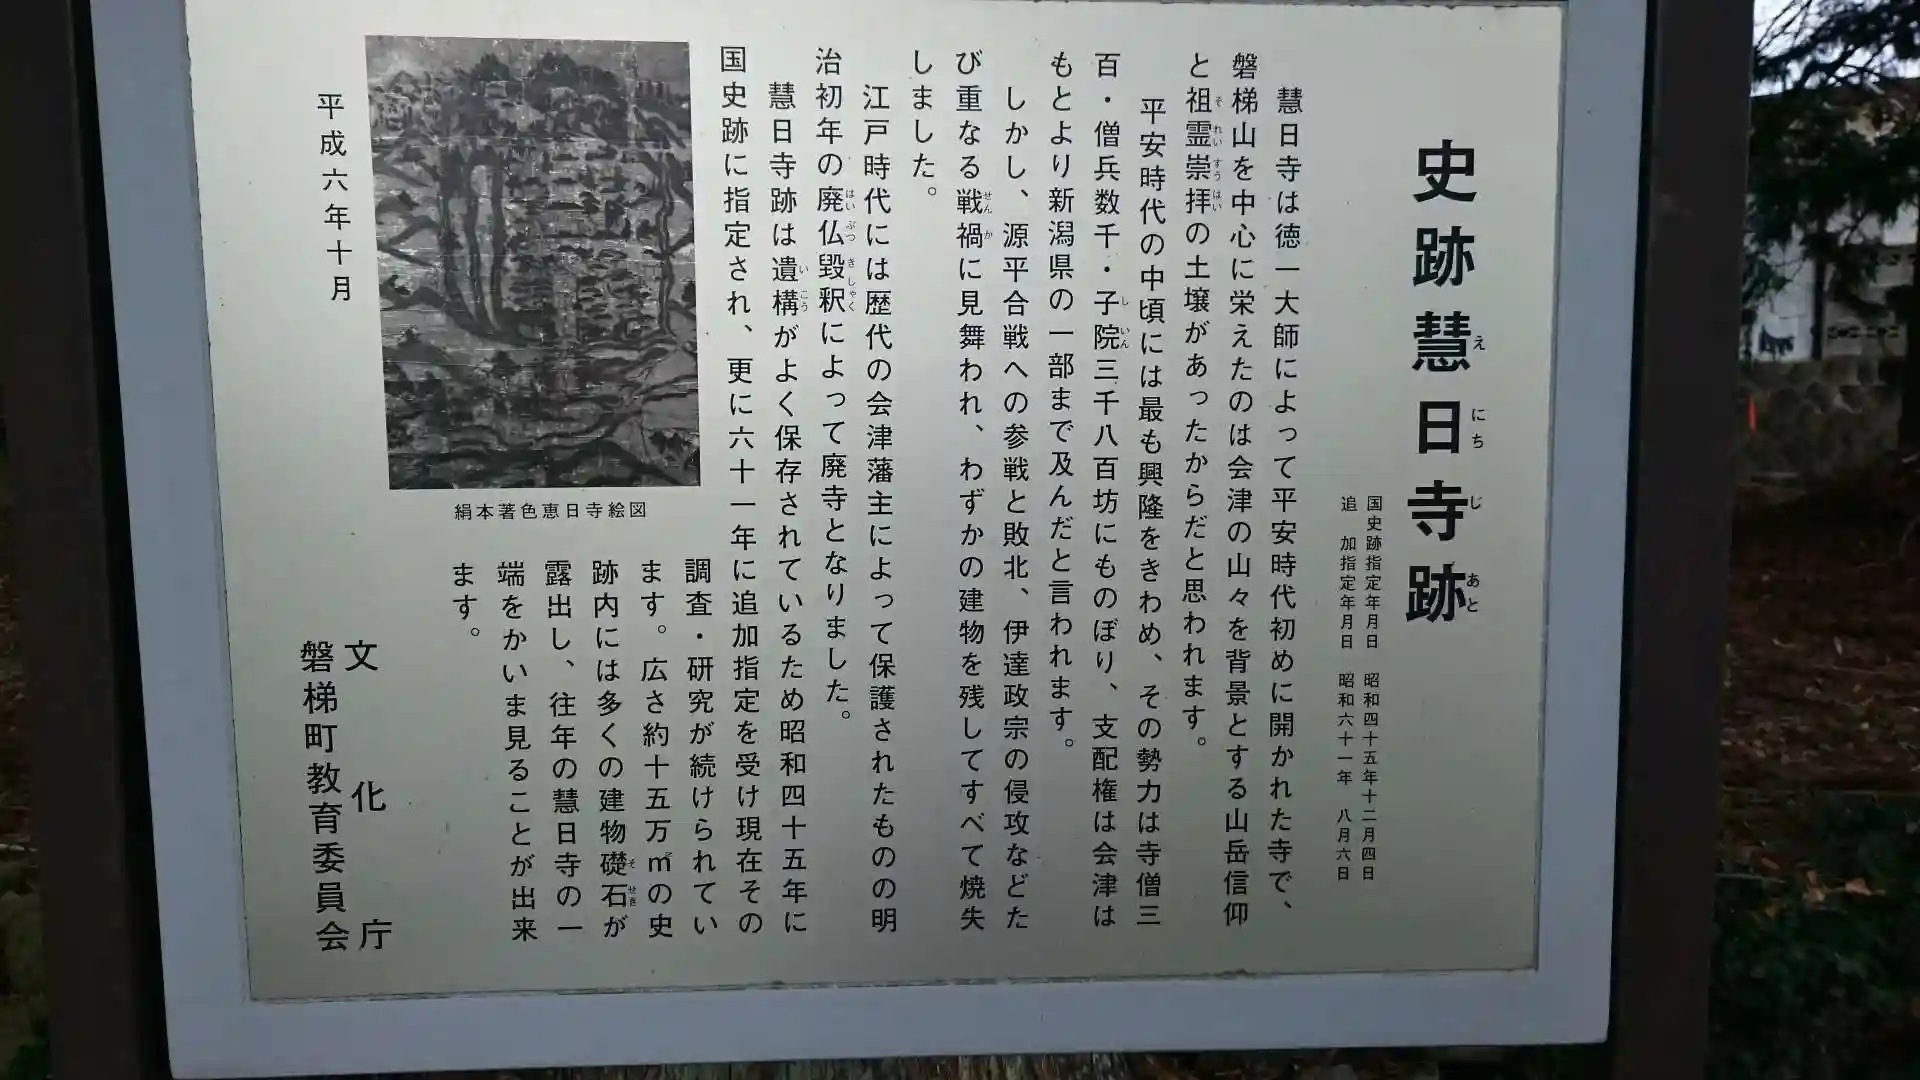 史跡慧日寺跡
えにちじあと
国史跡指定年月日　昭和四十五年十二月四日
追　加指定年月日　昭和六十一年　八月六日
慧日寺は徳一大師によって平安時代初めに開かれた寺で、
磐梯山を中心に栄えたのは会津の山々を背景とする山岳信仰
と祖霊崇拝の土壌があったからだと思われます。
それいすうはい
平安時代の中頃には最も興隆をきわめ、その勢力は寺僧三
百・僧兵数千・子院三千八百坊にものぼり、支配権は会津は
しいん
もとより新潟県の一部まで及んだと言われます。
しかし、源平合戦への参戦と敗北、伊達政宗の侵攻などた
び重なる戦禍に見舞われ、わずかの建物を残してすべて焼失
せんか
しました。
江戸時代には歴代の会津藩主によって保護されたものの明
治初年の廃仏毀釈によって廃寺となりました。
はいぶつきしゃく
慧日寺跡は遺構がよく保存されているため昭和四十五年に
いこう
国史跡に指定され、更に六十一年に追加指定を受け現在その
調査・研究が続けられてい
ます。広さ約十五万㎡の史
跡内には多くの建物礎石が
そせき
露出し、往年の慧日寺の一
端をかいま見ることが出来
ます。
絹本著色恵日寺絵図
平成六年十月
文化庁
磐梯町教育委員会